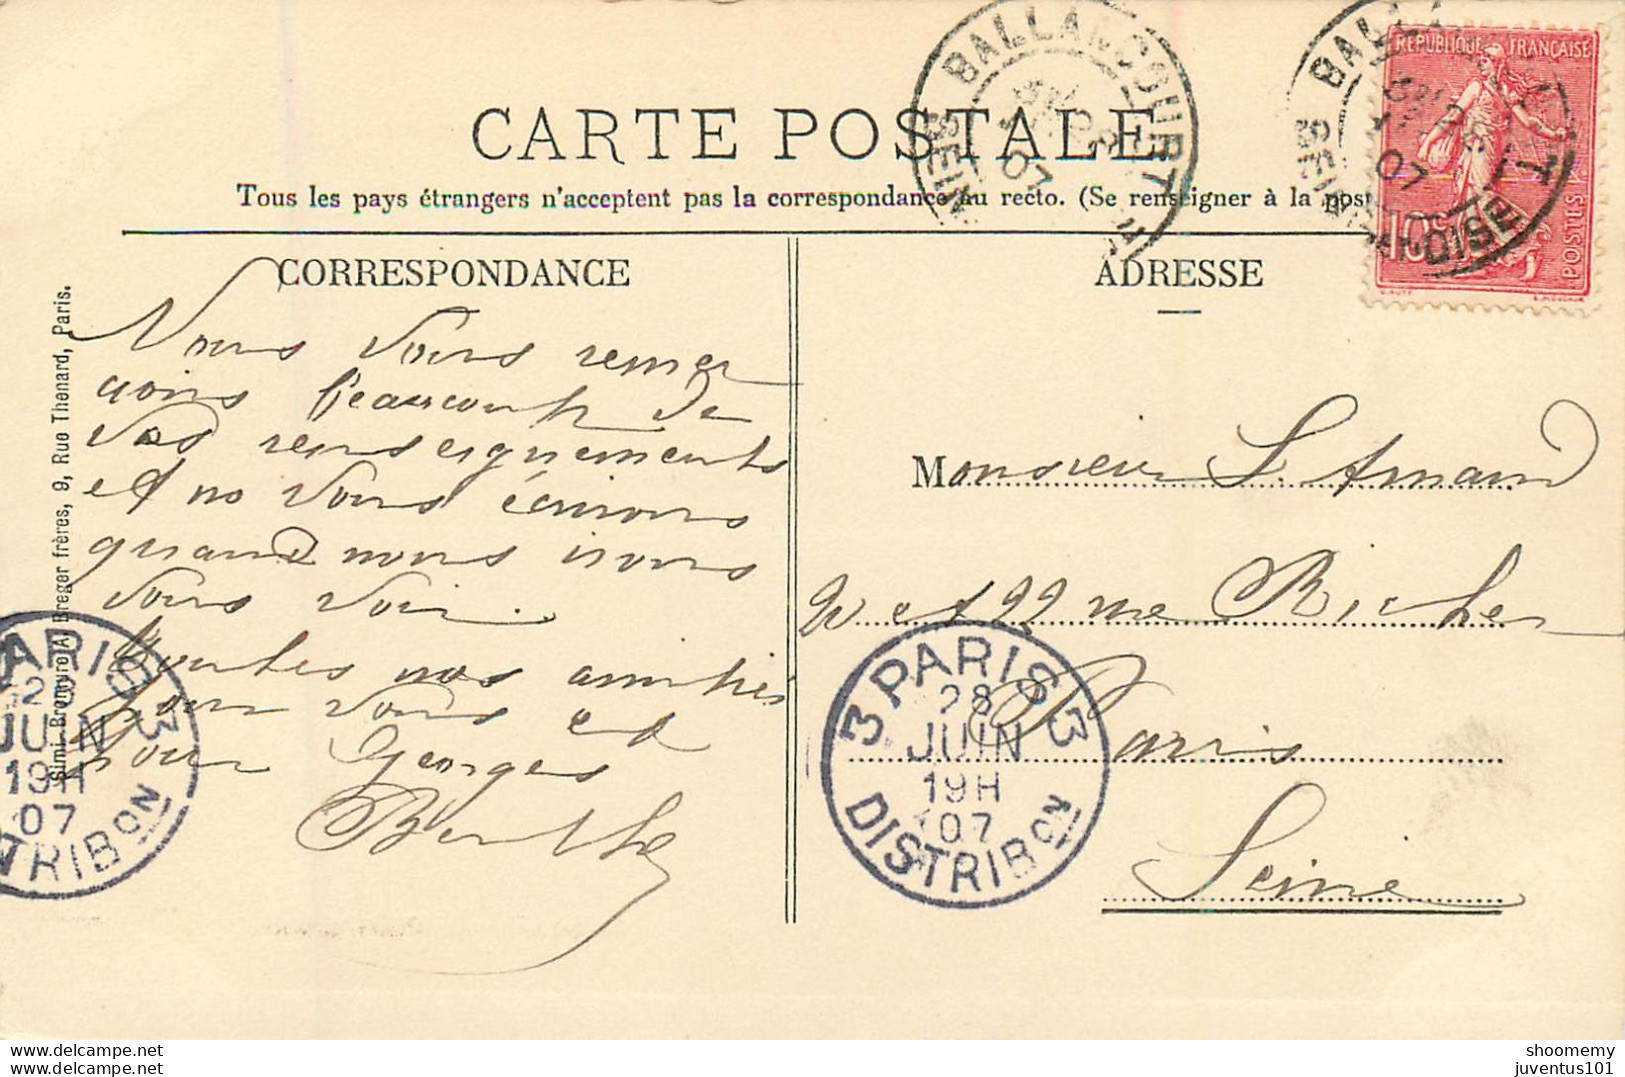 CARTE POSTALE
Tous les pays étrangers n'acceptent pas la correspondance au recto. (Se renseigner à la poste
CORRESPONDANCE
Nous vous remer
çions beaucoup de
vos renseignements
et no vous écrirons
quand nous irons
vous voir.
toutes nos amitiés
pour vous et
pour Georges
Berthe
Simi-Bromure A. Breger frères, 9, Rue Thenard, Paris.
ADRESSE
Monsieur S. Amand
20 et 22 rue Richer
Paris
Seine
BALLANCOURT
SEINE
28
07
BALL
T
SEINE-ET-OISE
07
REPUBLIQUE FRANÇAISE
10c
POSTES
PARIS 3
28
JUIN
19H
07
TRIBON
3 PARIS 3
28
JUIN
19H
07
DISTRIBON
delcampe.net
shoomemy
juventus101